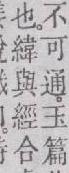 不可通玉篇
也。緯與經合